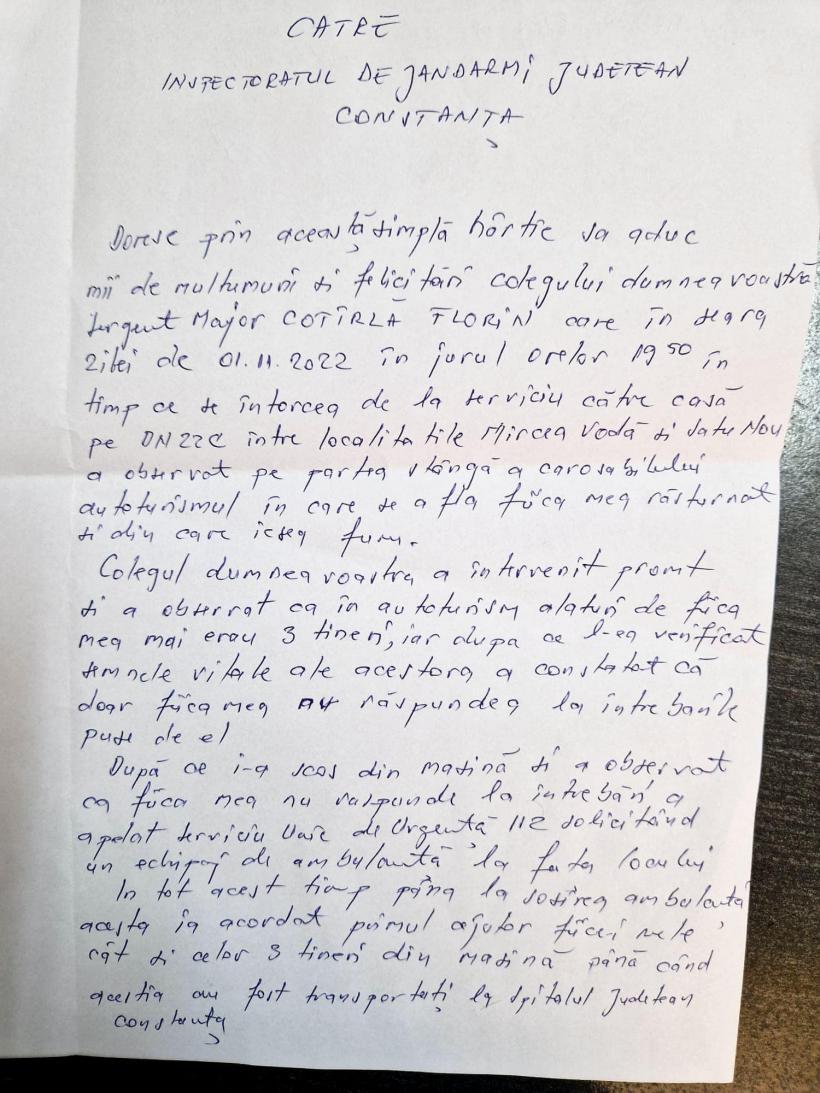 CATRE
INSPECTORATUL DE JANDARMI JUDETEAN
CONSTANȚA
Doresc prin această simplă hârtie sa aduc
mii de multumuri si felicitări colegului dumneavoastră
Sergent Major COTÎRLĂ FLORIN care în seara
zilei de 01.11.2022 în jurul orelor 19 50 în
timp ce se întorcea de la serviciu către casă
pe DN22C între localitatile Mircea Vodă si Satu Nou
a observat pe partea stângă a carosabilului
autoturismul în care se afla fiica mea răsturnat
si din care iesea fum.
Colegul dumneavoastra a intervenit promt
si a observat ca in autoturism alaturi de fiica
mea mai erau 3 tineri, iar dupa ce l-ea verificat
semnele vitale ale acestora a constatat că
doar fiica mea nu răspundea la intrebarile
puse de el
După ce i-a scos din masină si a observat
ca fiica mea nu raspunde la intrebări a
apelat serviciu Unic de Urgentă 112 solicitând
un echipaj de ambulantă la fata locului
In tot acest timp pâna la sosirea ambulantă
acesta ia acordat primul ajutor fiicei mele
cât si celor 3 tineri din masină până când
acestia au fost transportați la Spitalul Judetean
Constanța